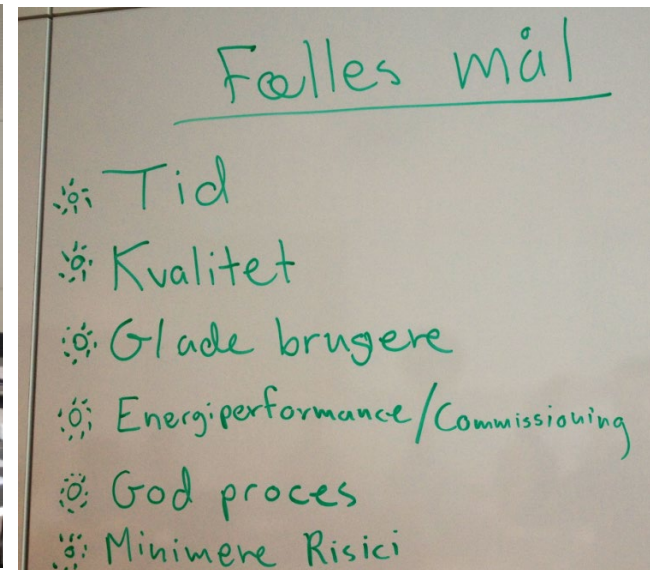 Fælles mål
Tid
Kvalitet
Glade brugere
Energiperformance/Commissioning
God proces
Minimere Risici